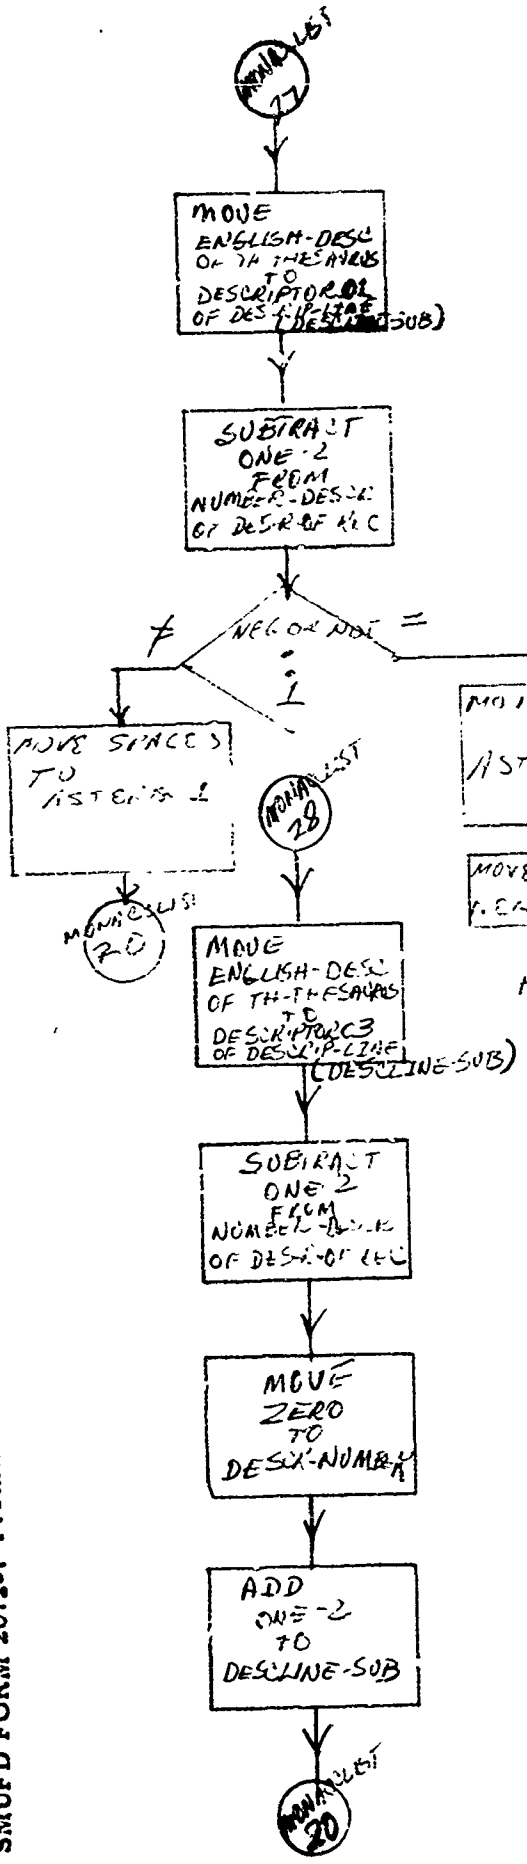 MONACLIST
27
MOVE
ENGLISH-DESC
OF TH THESAURUS
TO
DESCRIPTOR 01
OF DESCRIP-LINE
(DESCLINE-SUB)
SUBTRACT
ONE-2
FROM
NUMBER-DESCR
OF DESCR-OF REC
≠
=
:
1
MOVE SPACES
TO
MONACLIST
20
MONACLIST
28
MOVE
MOVE
ENGLISH-DESC
OF TH-THESAURUS
TO
DESCRIPTOR 03
OF DESCRIP-LINE
(DESCLINE-SUB)
SUBTRACT
ONE-2
FROM
OF DESCR-OF REC
MOVE
ZERO
TO
DESCR-NUMBER
ADD
ONE-2
TO
DESCLINE-SUB
MONACLIST
20
SMUFD FORM